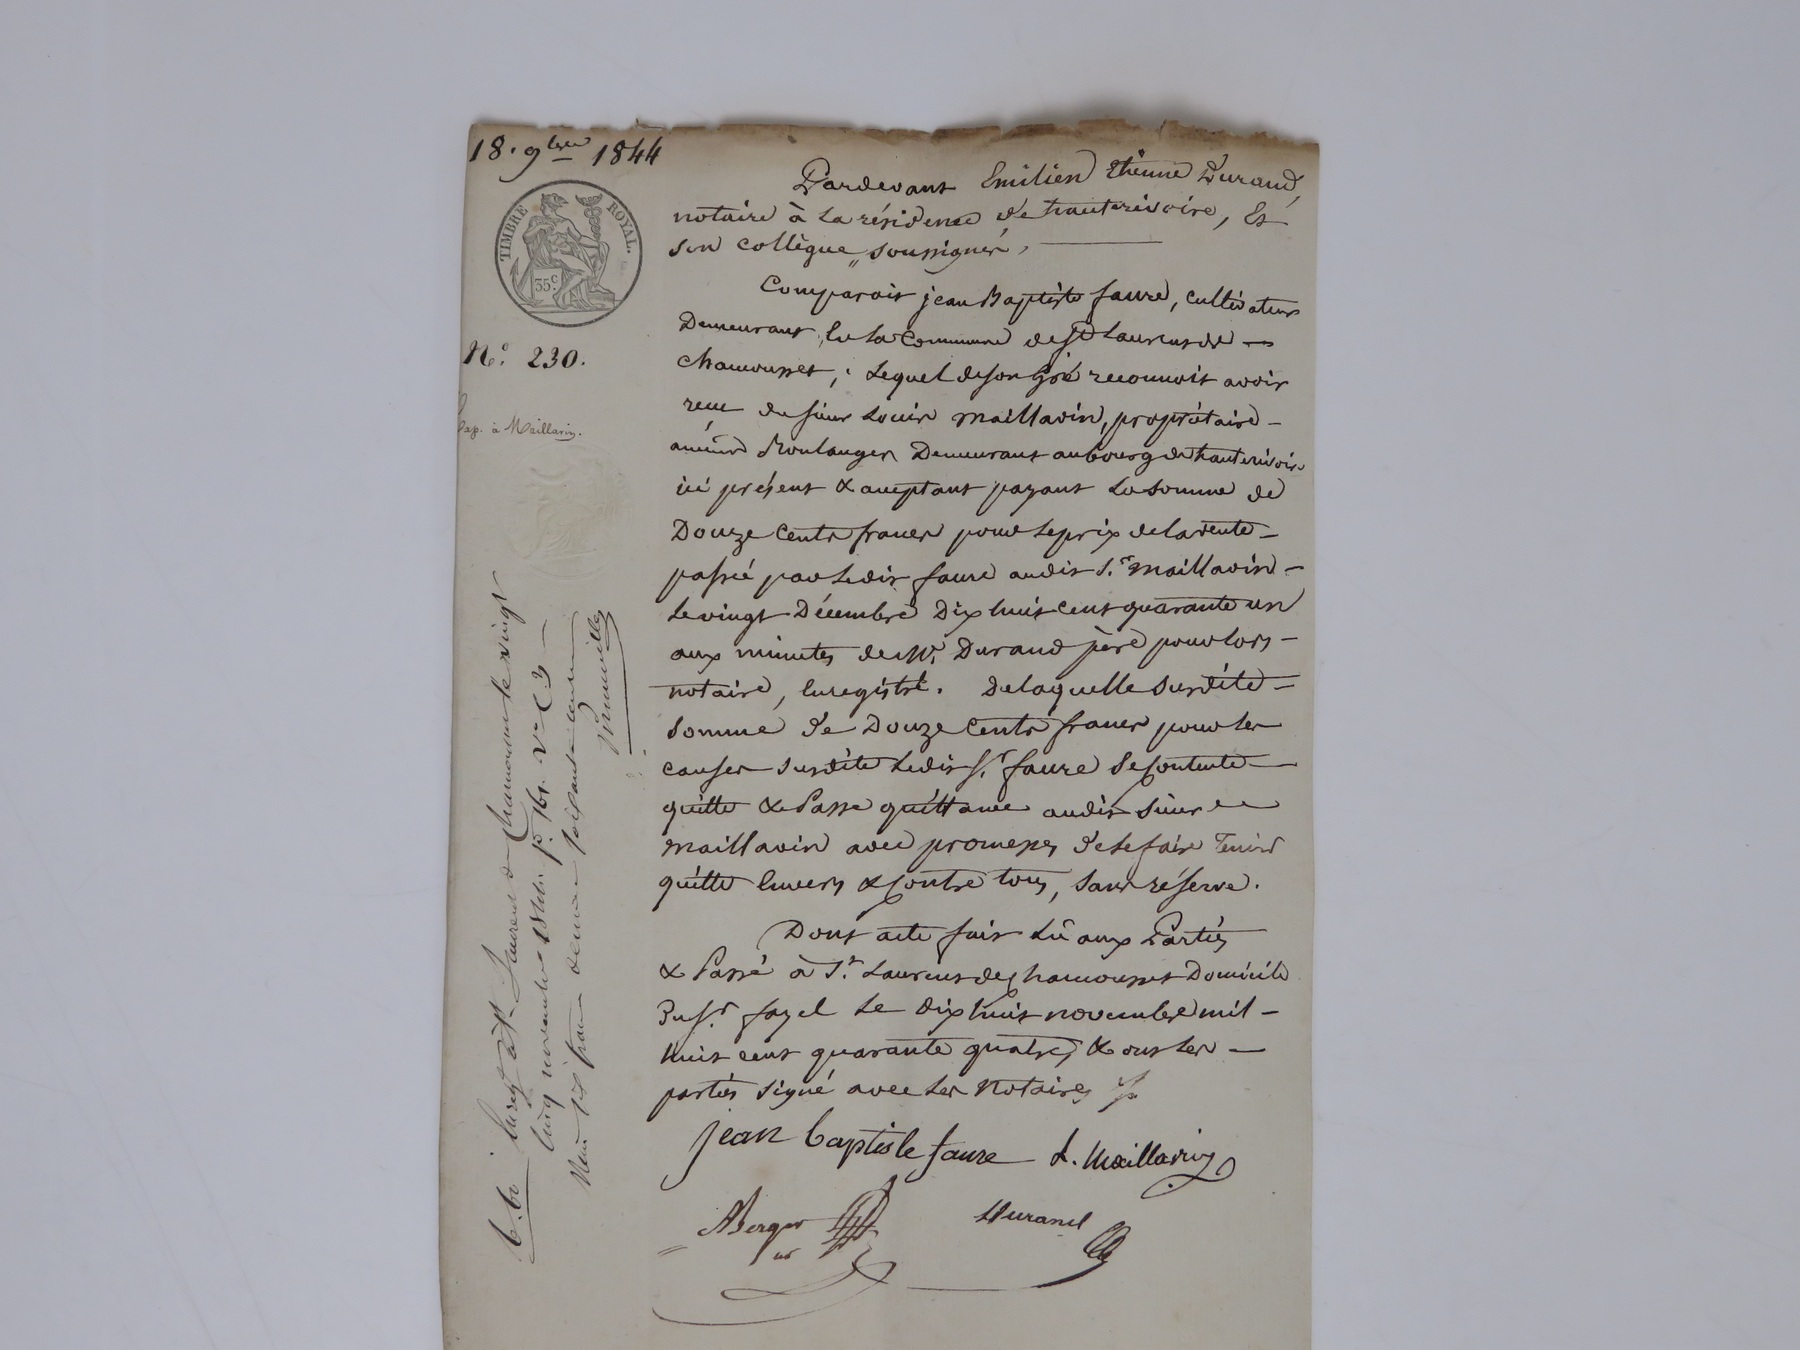 18. 9bre 1844
TIMBRE ROYAL.
35 c.
N.º 230.
Exp. à Maillavin.
Pardevant Emilien Etienne Durand,
notaire à la résidence de hauterivoire, Et
son collègue soussignés,
Comparait jean Baptiste faure, cultivateur
Demeurant en la commune de St Laurent de
chamousset, lequel de son gré reconnoit avoir
reçu du sieur Louis maillavin, propriétaire
ancien Boulanger Demeurant au bourg de hauterivoire
ici présent & acceptant payant la somme de
Douze cents francs pour le prix de la vente
passée par ledit faure audit S.r maillavin
le vingt Décembre Dix huit cent quarante un
aux minutes de M.e Durand père pour lors
notaire, Enregistré. De laquelle susdite
somme de Douze cents francs pour les
causes susdite ledit S.r faure se contente
quitte & Passe quittance audit sieur
maillavin avec promesses de le faire Tenir
quitte Envers & contre tous, sans réserve.
Dont acte fait Lû aux Parties
& Passé à S.t Laurent de chamousset Domicile
du S.r fayel le dix huit novembre mil
huit cent quarante quatre, & ont les
parties signé avec les Notaires
jean baptiste faure L. Maillavin
ABerger Durand
Enreg. à St. Laurent de Chamousset le vingt
cinq novembre 1844. f.o 161. v.o C 3
Reçu six francs decime soixante centimes